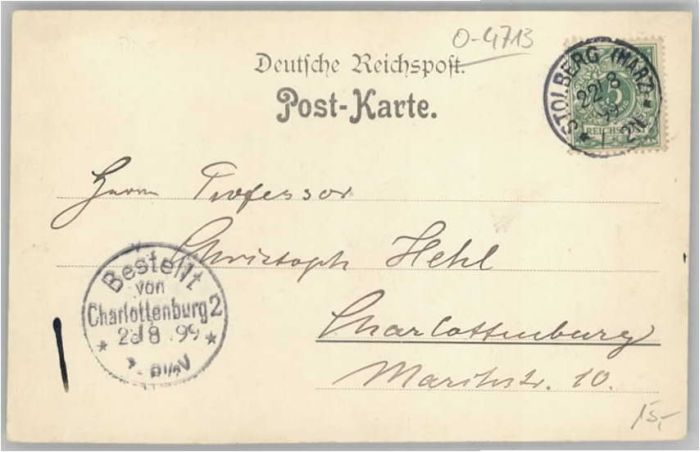 O-4713
Deutsche Reichspost.
Post-Karte.
STOLBERG (HARZ)
22 8
99
1-2N
5
REICHSPOST
Herrn Professor
Christoph Hehl
Charlottenburg
Marchstr. 10.
Bestellt
von
Charlottenburg 2
23 8 .99
15,-